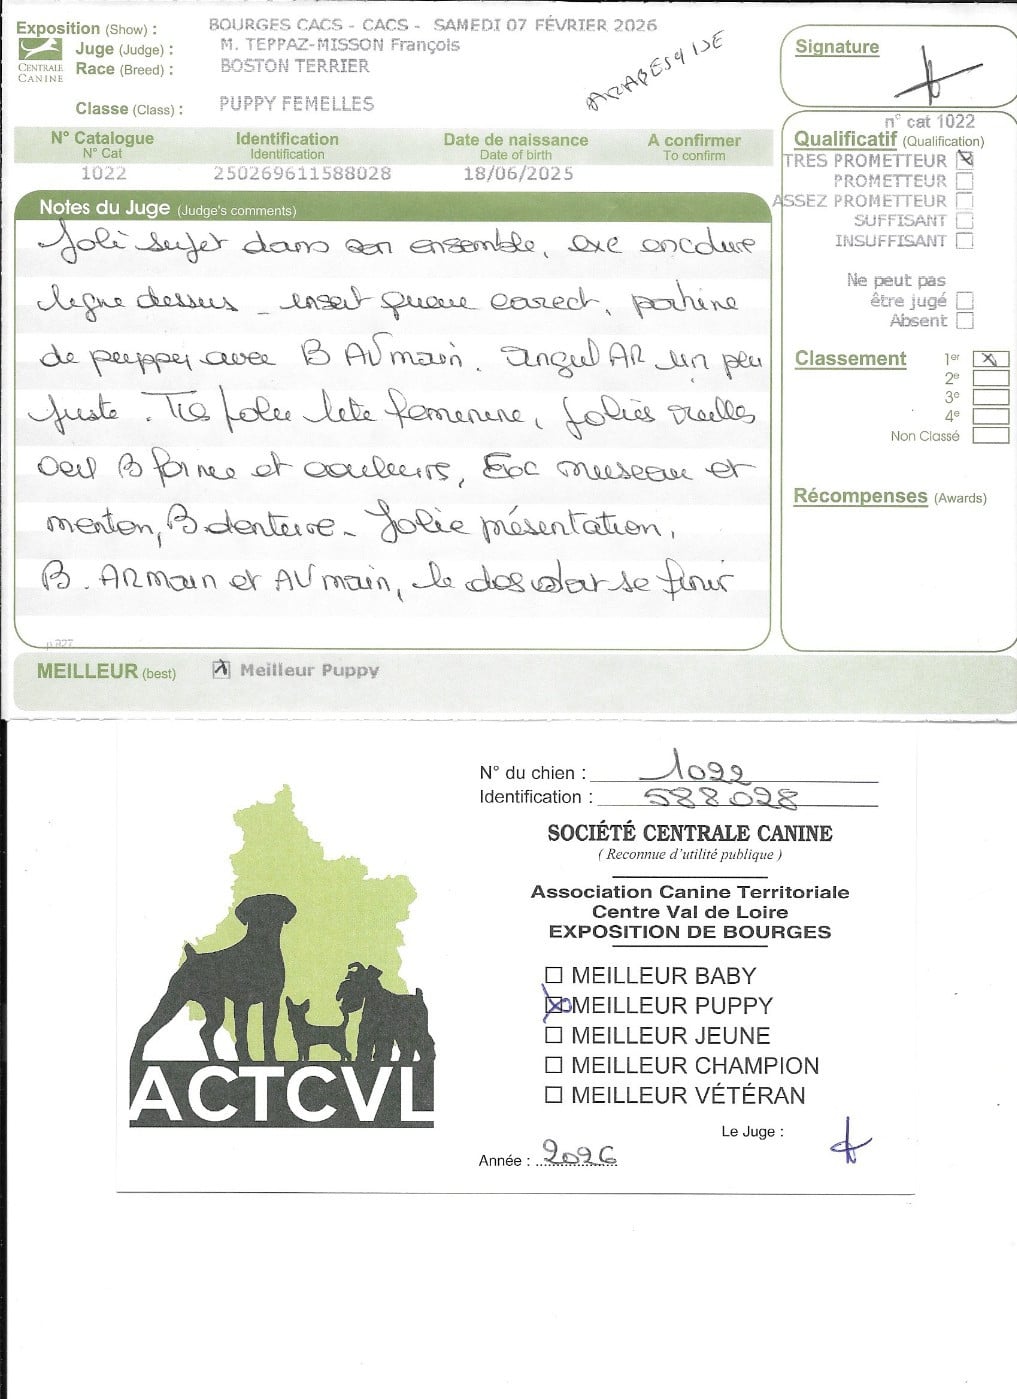 Exposition (Show) : BOURGES CACS - CACS - SAMEDI 07 FÉVRIER 2026
Juge (Judge) : M. TEPPAZ-MISSON François
Race (Breed) : BOSTON TERRIER
CENTRALE
CANINE
Classe (Class) : PUPPY FEMELLES
Signature
N° Catalogue Identification Date de naissance A confirmer
N° Cat Identification Date of birth To confirm
1022 250269611588028 18/06/2025
Notes du Juge (Judge's comments)
Joli sujet dans son ensemble, exc encolure
ligne dessus - inset queue correct, poitrine
de puppy avec B AV main. Angul AR un peu
juste. Très jolie tête féminine, jolies oreilles
oeil B forme et couleurs, Exc museau et
menton, B denture - Jolie présentation,
B. AR main et AV main, le dos doit se finir
n° cat 1022
Qualificatif (Qualification)
TRES PROMETTEUR
PROMETTEUR
ASSEZ PROMETTEUR
SUFFISANT
INSUFFISANT
Ne peut pas
être jugé
Absent
Classement 1er
2e
3e
4e
Non Classé
Récompenses (Awards)
MEILLEUR (best) Meilleur Puppy
N° du chien : 1022
Identification : 588028
SOCIÉTÉ CENTRALE CANINE
( Reconnue d'utilité publique )
Association Canine Territoriale
Centre Val de Loire
EXPOSITION DE BOURGES
MEILLEUR BABY
MEILLEUR PUPPY
MEILLEUR JEUNE
MEILLEUR CHAMPION
MEILLEUR VÉTÉRAN
Le Juge :
Année : 2026
ACTCVL